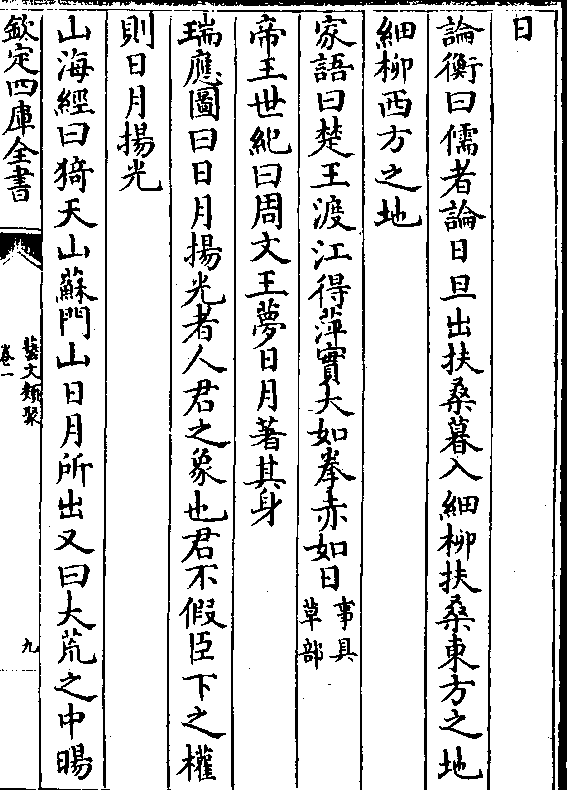 日
論衡曰儒者論日旦出扶桑暮入細柳扶桑東方之地
細柳西方之地
家語曰楚王渡江得萍實大如拳赤如日事具草部
帝王世紀曰周文王夢日月著其身
瑞應圖曰日月揚光者人君之象也君不假臣下之權
則日月揚光
山海經曰猗天山蘇門山日月所出又曰大荒之中暘
欽定四庫全書
藝文類聚
卷一
九